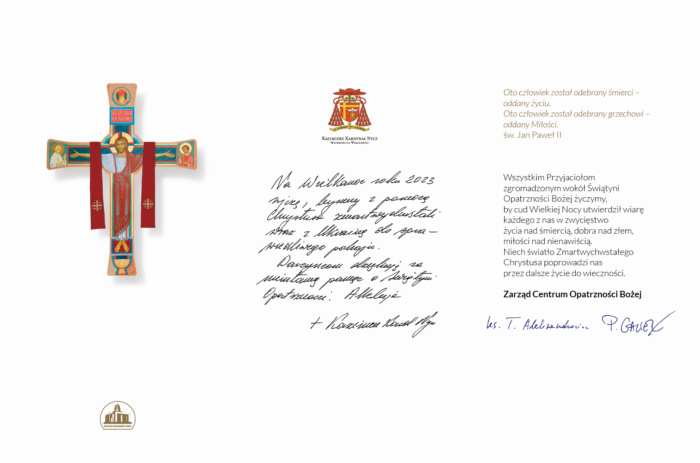 KAZIMIERZ KARDYNAŁ NYCZ
METROPOLITA WARSZAWSKI
Na Wielkanoc roku 2023
z pomocą
Chrystusa zmartwychwstali
wraz z Ukrainą do spra-
wiedliwego pokoju.
Darczyńcom dziękuję za
pamięć o Świątyni
Opatrzności. Alleluja
+ Kazimierz Kard. Nycz
Oto człowiek został odebrany śmierci –
oddany życiu.
Oto człowiek został odebrany grzechowi –
oddany Miłości.
św. Jan Paweł II
Wszystkim Przyjaciołom
zgromadzonym wokół Świątyni
Opatrzności Bożej życzymy,
by cud Wielkiej Nocy utwierdził wiarę
każdego z nas w zwycięstwo
życia nad śmiercią, dobra nad złem,
miłości nad nienawiścią.
Niech światło Zmartwychwstałego
Chrystusa poprowadzi nas
przez dalsze życie do wieczności.
Zarząd Centrum Opatrzności Bożej
ks. T. Aleksandrowicz P. GAWEŁ